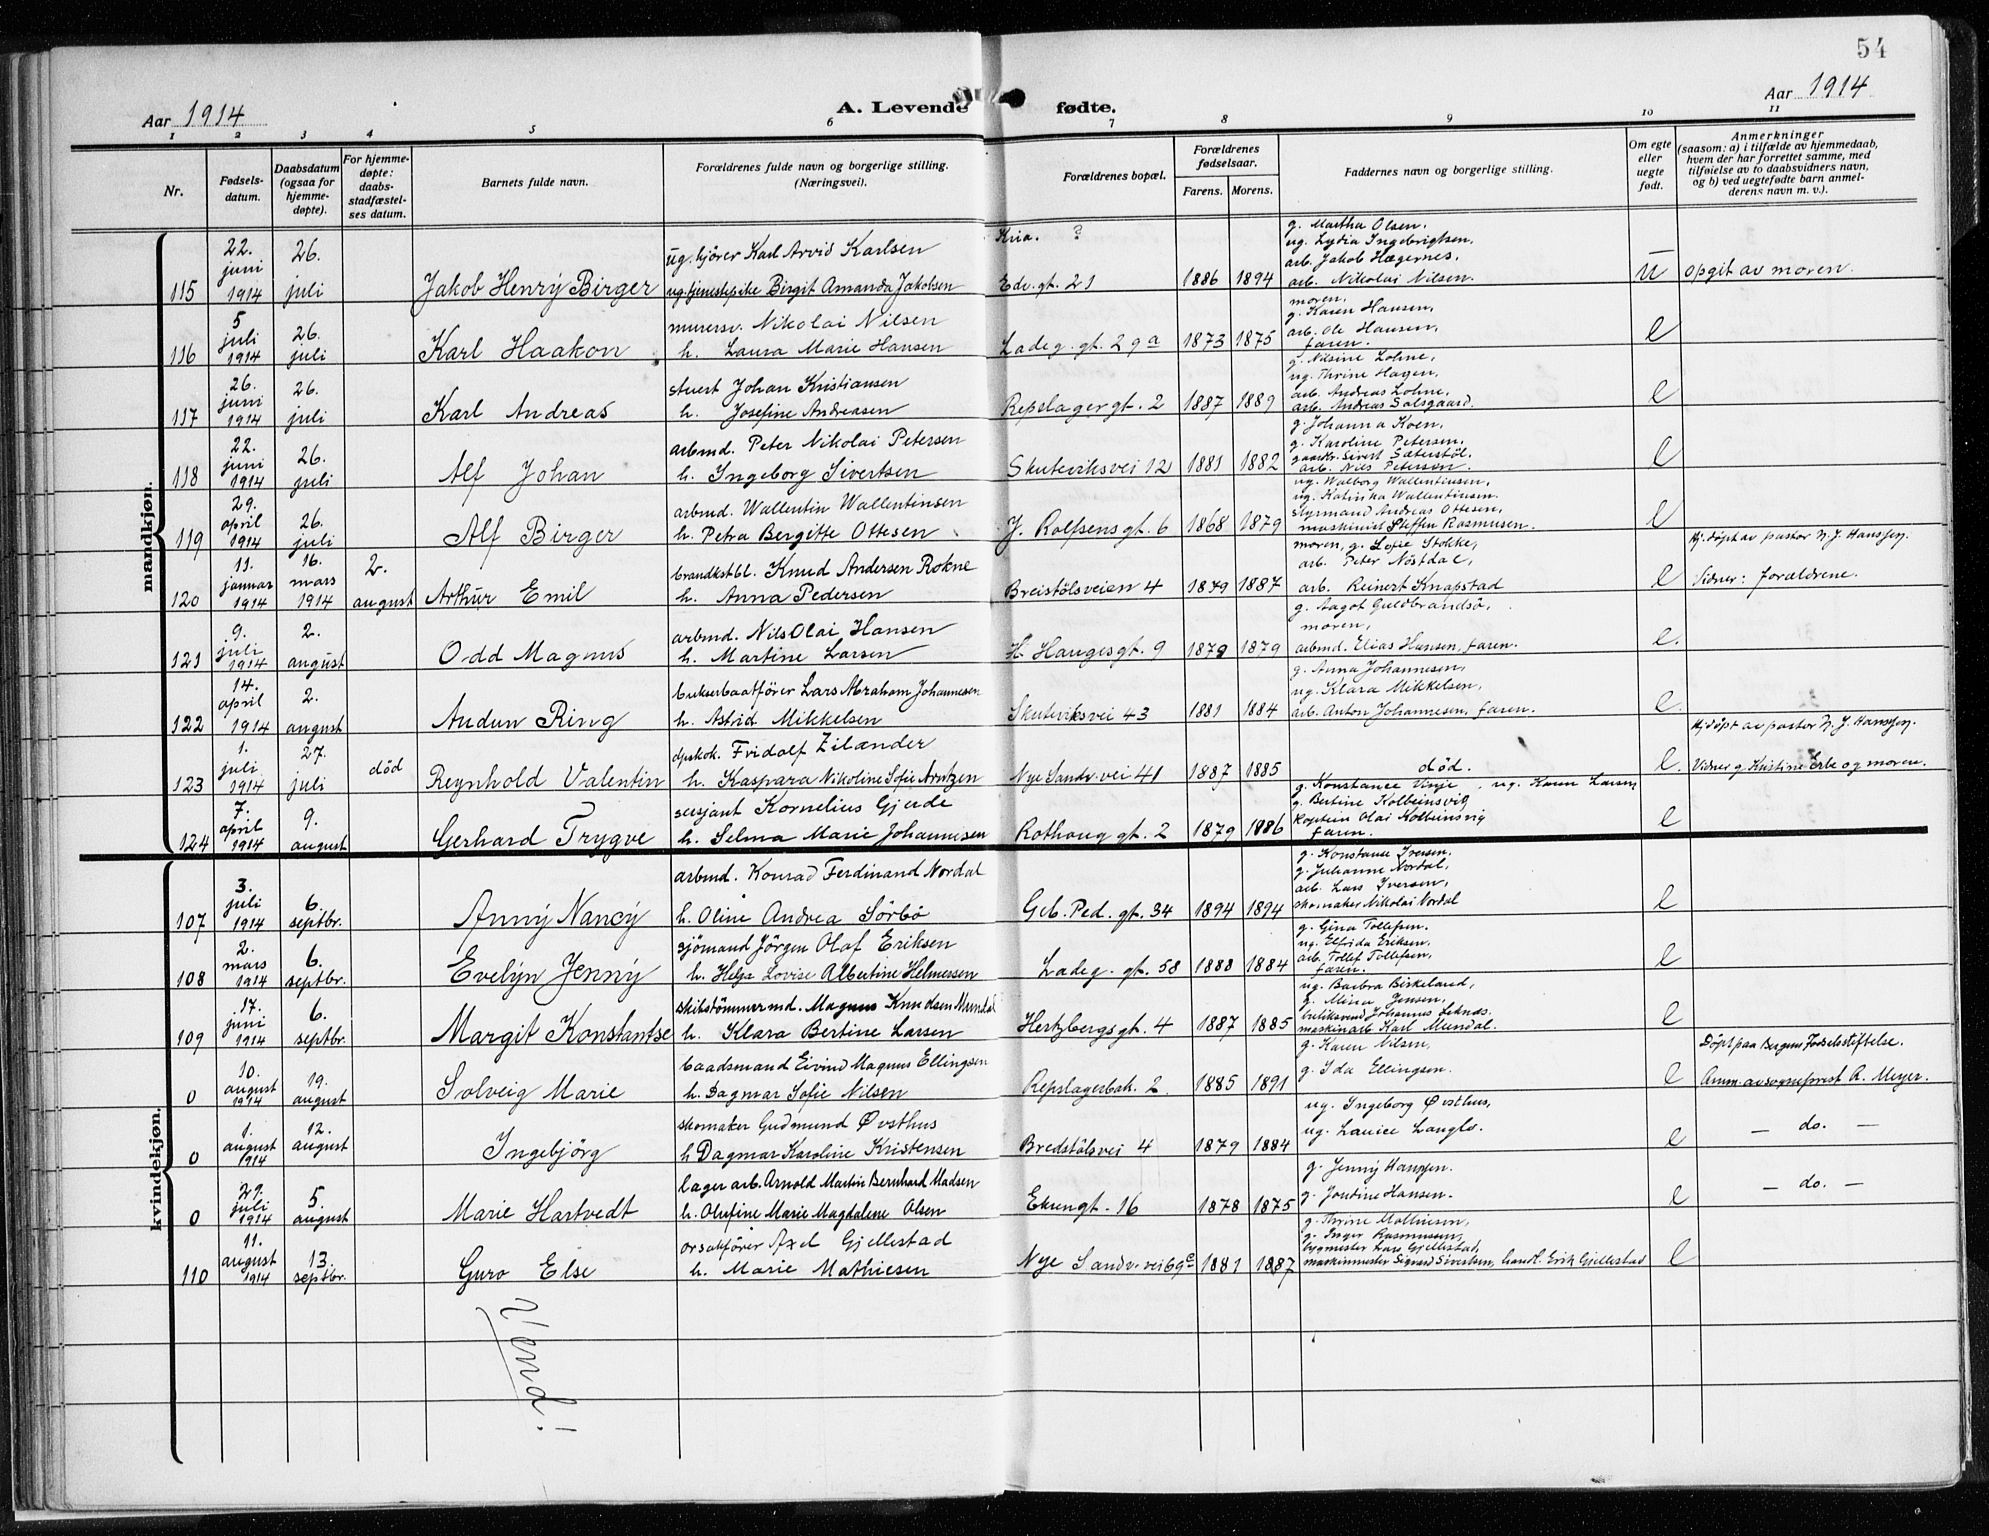 54
Aar 1914
A. Levende fødte.
Aar 1914
1 2 3 4 5 6 7 8 9 10 11
Nr.
Fødsels-
datum.
Daabsdatum
(ogsaa for
hjemme-
døpte).
For hjemme-
døpte:
daabs-
stadfæstel-
ses datum.
Barnets fulde navn.
Forældrenes fulde navn og borgerlige stilling.
(Næringsvei).
Forældrenes bopæl.
Forældrenes
fødselsaar.
Farens. Morens.
Faddernes navn og borgerlige stilling.
Om egte
eller
uegte
født.
Anmerkninger
(saasom: a) i tilfælde av hjemmedaab,
hvem der har forrettet samme, med
tilføielse av to daabsvidners navn,
og b) ved uegtefødte barn anmel-
derens navn m. v.).
mandkjøn.
115
22.
juni
1914
26.
juli
Jakob Henry Birger
ug. kjører Karl Arvid Karlsen
ug. tjenestepike Birgit Amanda Jakobsen
Kria. ?
Edv. gt. 21
1886 1894
g. Martha Olsen,
ug. Lydia Ingebrigtsen,
arb. Jakob Hægernes,
arb. Nikolai Nilsen.
u
opgit av moren.
116
5
juli
1914
26.
juli
Karl Haakon
murersv. Nikolai Nilsen
h. Laura Marie Hansen
Ladeg. gt. 29a
1873 1875
moren,
g. Karen Hansen,
arb. Ole Hansen,
faren.
e
117
26.
juni
1914
26.
juli
Karl Andreas
stuert Johan Kristiansen
h. Josefine Andreasen
Repslagergt. 2
1887 1889
g. Nilsine Lohne,
ug. Thrine Hagen,
arb. Andreas Lohne,
arb. Andreas Solsgaard.
e
118
22.
juni
1914
26.
juli
Alf Johan
arbmd. Peter Nikolai Petersen
h. Ingeborg Sivertsen
Skuteviksvei 12
1881 1882
g. Johanna Koen,
g. Karoline Petersen,
gaardbr. Sivert Sæterstøl,
arb. Nils Petersen.
e
119
29.
april
1914
26.
juli
Alf Birger
arbmd. Wallentin Wallentinsen
h. Petra Bergitte Ottesen
J. Rolfsensgt. 6
1868 1879
ug. Walborg Wallentinsen,
ug. Katinka Wallentinsen.
styrmand Andreas Ottesen,
maskinist Steffen Rasmussen.
e
120
11.
januar
1914
16.
mars
1914
2.
august
Arthur Emil
brandkstbl. Knud Andersen Rokne
h. Anna Pedersen
Breistölsveien 4
1879 1887
moren, g. Sofie Stokke,
arb. Peter Nöstdal,
arb. Reinert Knapstad
e
Hj.döpt av pastor N. J. Hanssen.
Vidner: forældrene.
121
9.
juli
1914
2.
august
Odd Magnus
arbmd. Nils Olai Hansen
h. Martine Larsen
H. Haugesgt. 9
1879 1879
g. Aagot Guldbrandsö,
moren,
arbmd. Elias Hansen, faren.
e.
122
14.
april
1914
2.
august
Audun Ring
bukserbaatfører Lars Abraham Johannesen
h. Astrid Mikkelsen
Skuteviksvei 43
1881 1884
g. Anna Johannesen,
ug. Klara Mikkelsen,
arb. Anton Johannesen, faren.
e.
123
1.
juli
1914
27.
juli
död
Reynhold Valentin
dpskok. Fridolf Zilander
h. Kaspara Nikoline Sofie Arntzen
Nye Sandv. vei 41
1887 1885
död.
e.
Hj.döpt av pastor N. J. Hanssen.
Vidner g. Kristine Erle og moren.
124
7.
april
1914
9.
august
Gerhard Trygve
sersjant Kornelius Gjerde
h. Selma Marie Johannesen
Rothaug gt. 2
1879 1886
g. Konstance Unje, ug. Karen Larsen
g. Bertine Kolbeinsvig
kaptein Olai Kolbeinsvig
faren.
e
kvindekjøn.
107
3.
juli
1914
6.
septbr.
Anny Nancy
arbmd. Konrad Ferdinand Nordal
h. Oline Andrea Sörbö
Geb. Ped. gt. 34
1894 1894
g. Konstanse Iversen.
g. Julianne Nordal,
arb. Lars Iversen,
skomaker Nikolai Nordal
e
108
2.
mars
1914
6.
septbr.
Evelyn Jenny
sjömand Jörgen Olaf Eriksen
h. Helga Lovise Albertine Helmersen
Ladeg. gt. 58
1888 1884
g. Gina Tollefsen.
ug. Elfrida Eriksen,
arb. Tollef Tollefsen,
faren.
e
109
17.
juni
1914
6.
septbr.
Margit Konstantse
skibstömmermd. Magnus Knudsen Mundal
h. Klara Bertine Larsen
Hertzbergsgt. 4
1887 1885
ug. Barbra Birkeland,
g. Mina Jensen,
butiksvend Johannes Leknes.
maskinarb Karl Mundal.
e
0
10.
august
1914
19.
august
Solveig Marie
baadsmand Eivind Magnus Ellingsen
h. Dagmar Sofie Nilsen
Repslagerbak. 2
1885 1891
g. Karen Nilsen,
g. Ida Ellingsen.
e
Döpt paa Bergens Fødselsstiftelse.
Anm. av sogneprest A. Meyer.
0
1.
august
1914
12.
august
Ingebjörg
skomaker Gudmund Øvsthus
h. Dagmar Karoline Kristensen
Bredstölsvei 4
1879 1884
ug. Ingeborg Øvsthus,
ug. Lauice Langlo.
e
— do. —
0
29.
juli
1914
5.
august
Marie Hartvedt
lager arb. Arnold Martin Bernhard Madsen
h. Olufine Marie Magdalene Olsen
Ekrengt. 16
1878 1875
g. Jenny Hanssen.
g. Jondine Hansen.
e
— do. —
110
11.
august
1914
13.
septbr.
Guro Else
orsakfører Axel Gjellestad
h. Marie Mathiesen
Nye Sandv. vei 69c
1881 1887
g. Thrine Mathiesen,
g. Inger Rasmussen,
bygmester Lars Gjellestad,
maskinmester Sigvard Sivertsen, handl. Erik Gjellestad
e
Vend!